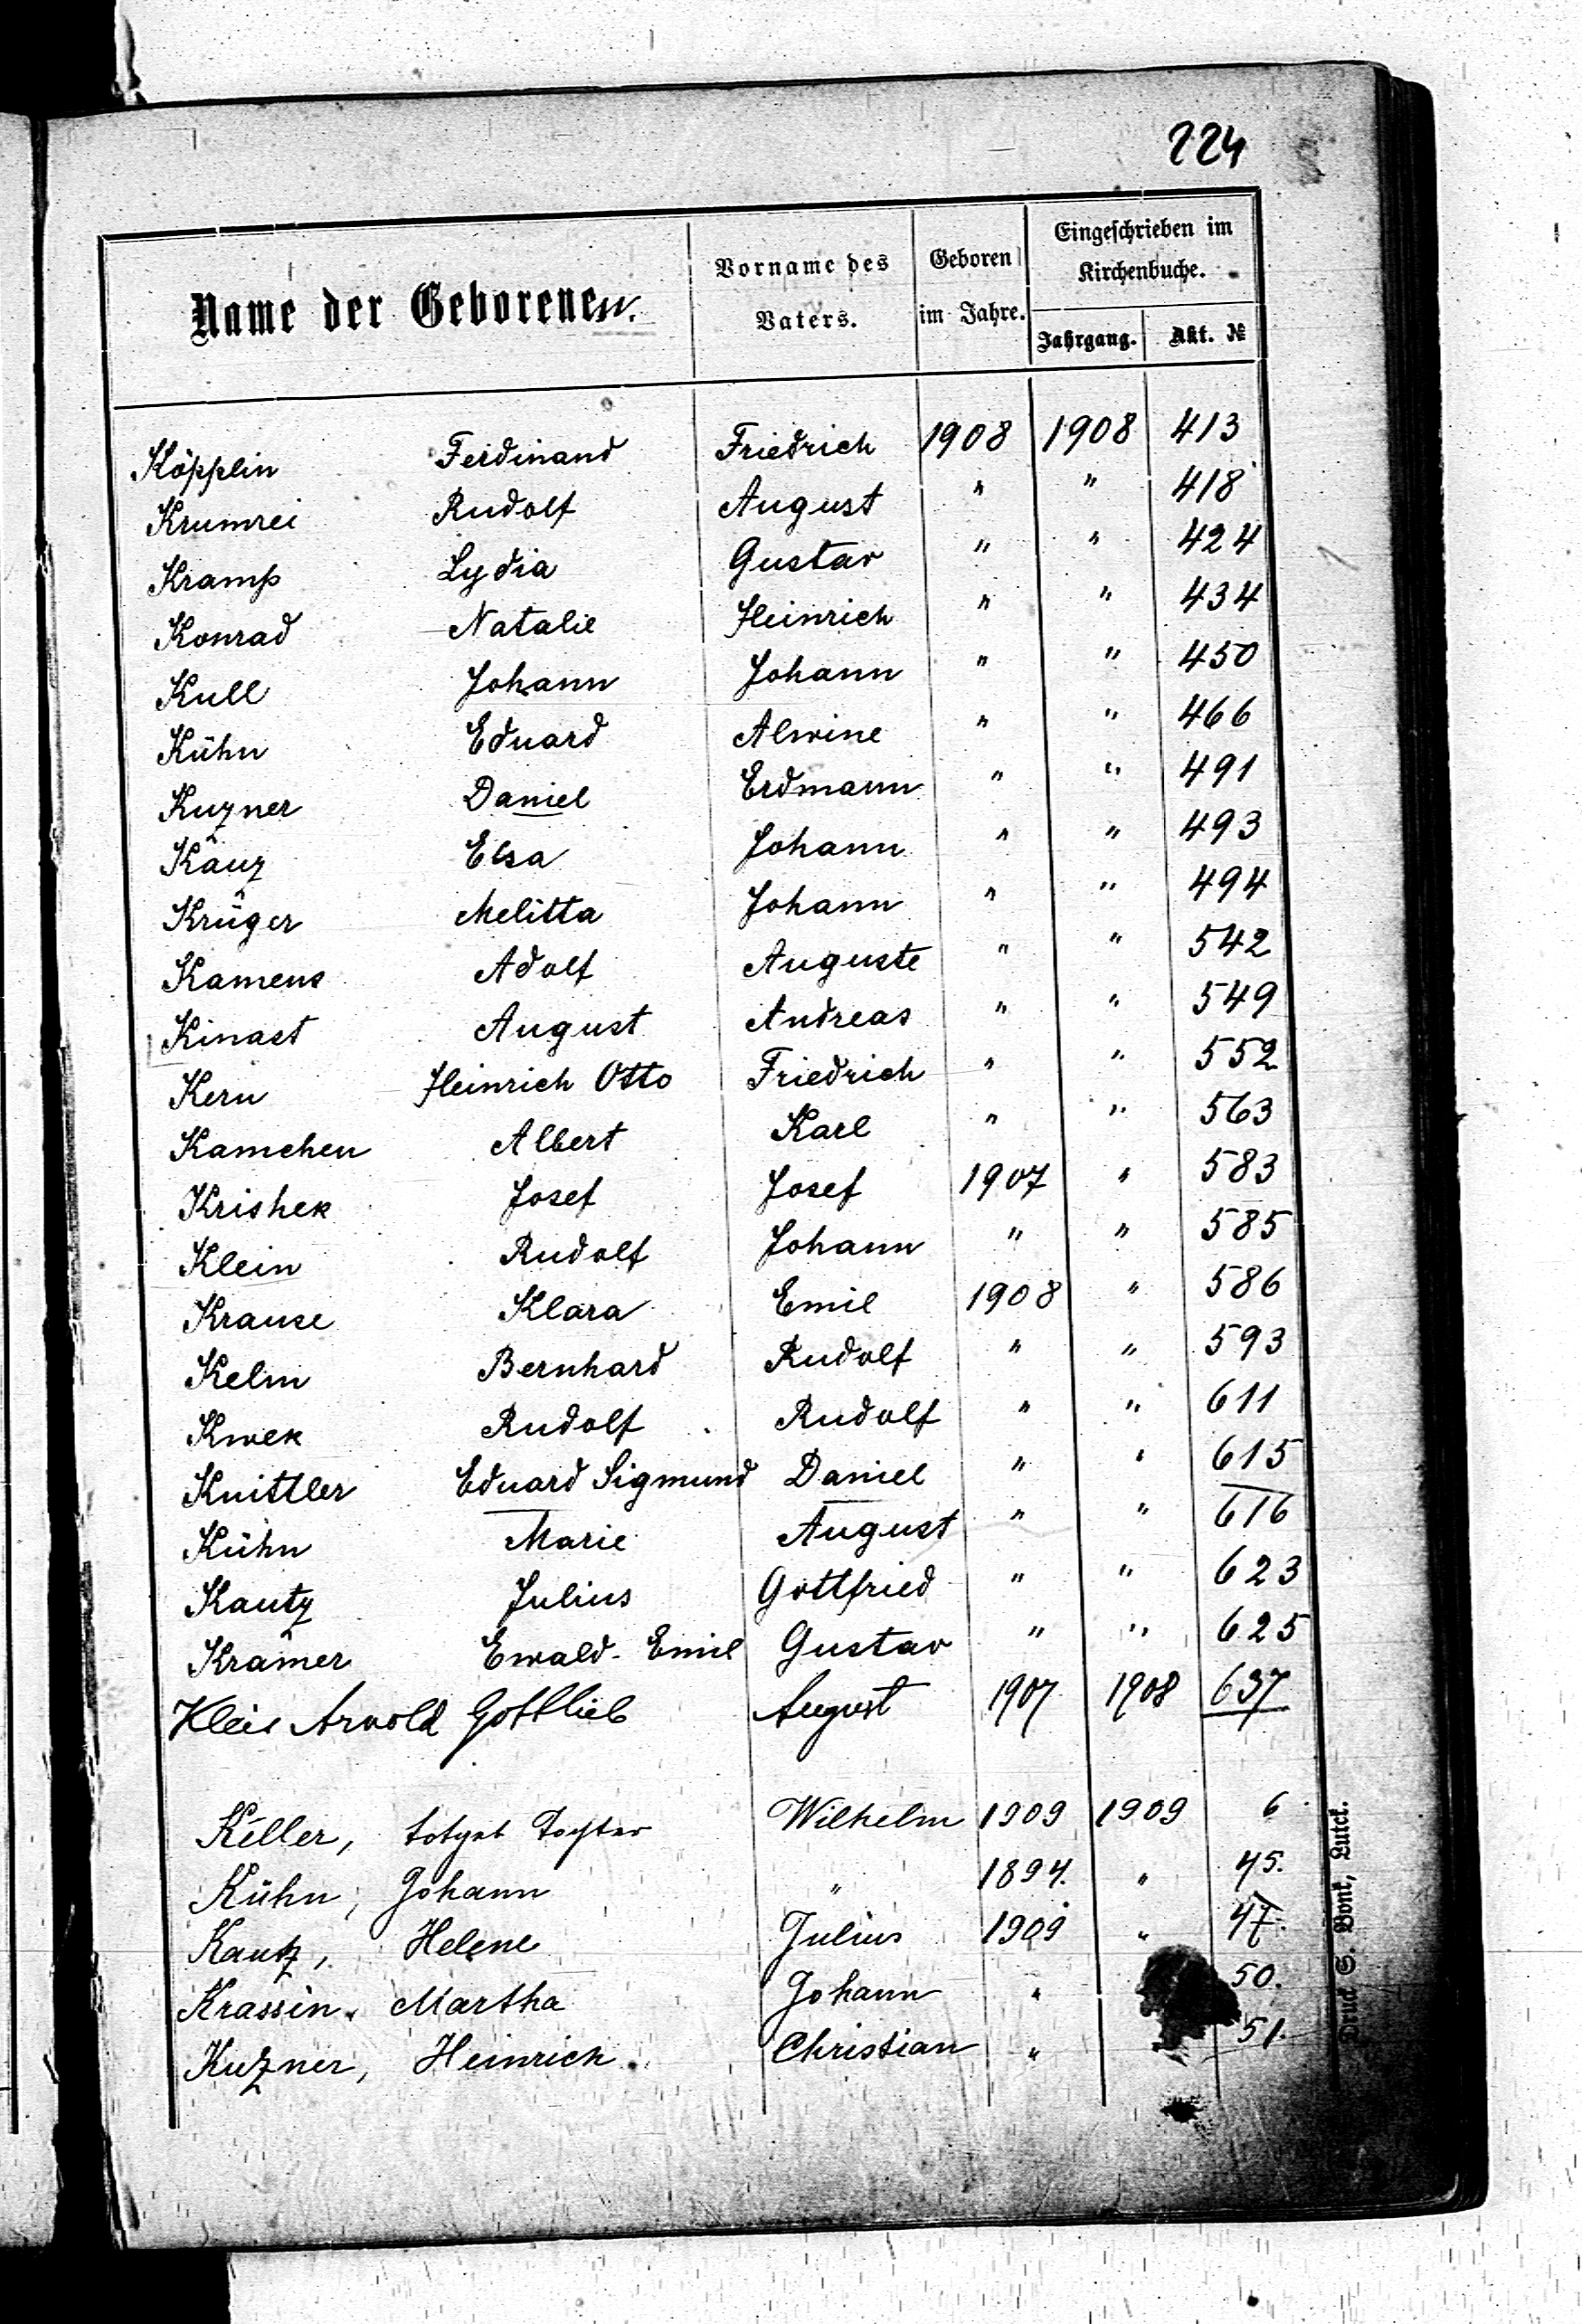 224
Name der Geborenen. Vorname des Vaters. Geboren im Jahre. Eingeschrieben im Kirchenbuche.
Jahrgang. Akt. №
Köpplin Ferdinand Friedrich 1908 1908 413
Krumrei Rudolf August " " 418
Kramp Lydia Gustav " " 424
Konrad Natalie Heinrich " " 434
Kull Johann Johann " " 450
Kühn Eduard Alwine " " 466
Kuzner Daniel Erdmann " " 491
Kauz Elsa Johann " " 493
Krüger Melitta Johann " " 494
Kamens Adolf Auguste " " 542
Kinast August Andreas " " 549
Kern Heinrich Otto Friedrich " " 552
Kamchen Albert Karl " " 563
Krishek Josef Josef 1907 " 583
Klein Rudolf Johann " " 585
Krause Klara Emil 1908 " 586
Kelm Bernhard Rudolf " " 593
Kwek Rudolf Rudolf " " 611
Knittler Eduard Sigmund Daniel " " 615
Kühn Marie August " " 616
Kautz Julius Gottfried " " 623
Krämer Ewald-Emil Gustav " " 625
Kleis Arnold Gottlieb August 1907 1908 637
Keller, totgeb Tochter Wilhelm 1909 1909 6
Kühn, Johann " 1894. " 45.
Kautz, Helene Julius 1909 " 47.
Krassin, Martha Johann " 50.
Kuzner, Heinrich. Christian " 51.
Druck S. Bonk, Lutck.